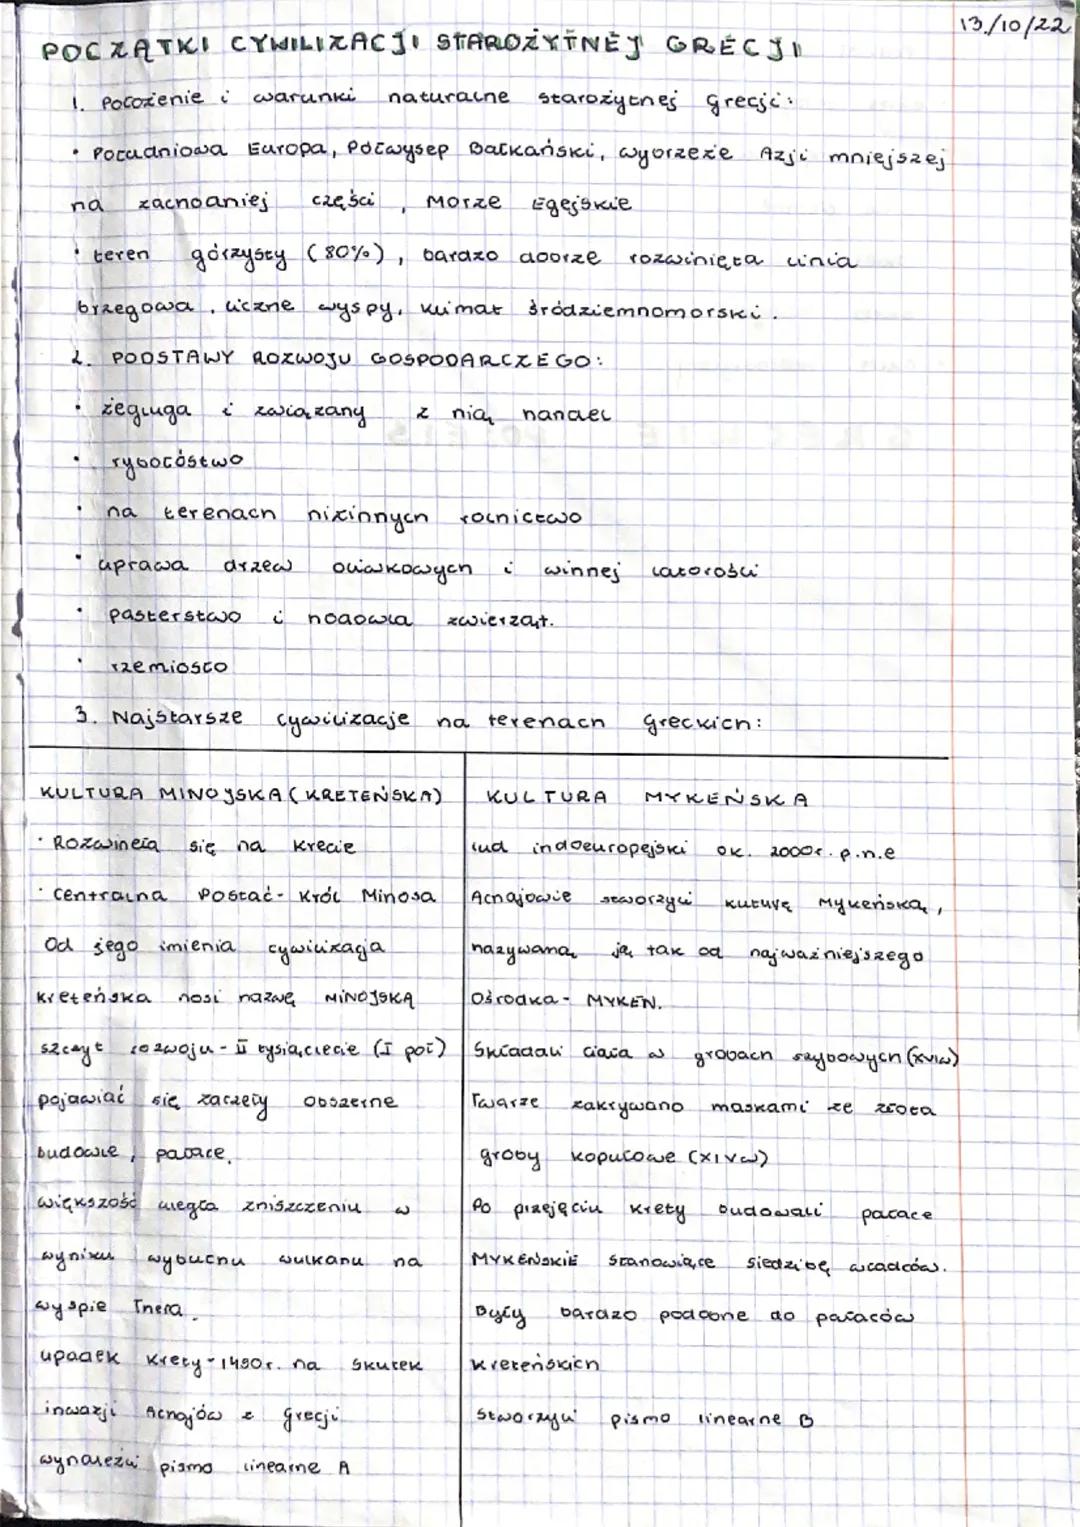 13/10/22
POCZĄTKI CYWILIZACJI STAROŻYTNEJ GRECJI
1. Położenie i warunki naturalne starożytnej Grecji:
• Południowa Europa, Półwysep Bałkański, wybrzeże Azji mniejszej
na zachodniej części, Morze Egejskie
• teren górzysty (80%), bardzo dobrze rozwinięta linia
brzegowa, liczne wyspy, klimat śródziemnomorski.
2. PODSTAWY ROZWOJU GOSPODARCZEGO:
• żegluga i związany z nią handel
• rybołóstwo
• na terenach nizinnych rolnictwo
• uprawa drzew oliwkowych i winnej latorości
• pasterstwo i hodowla zwierząt.
• rzemiosło
3. Najstarsze cywilizacje na terenach Greckich:
KULTURA MINOJSKA (KRETEŃSKA)
• Rozwineła się na krecie
• centralna Postać - Król Minosa
Od jego imienia cywilizacja
kreteńska nosi nazwę MINOJSKĄ
szczyt rozwoju - II tysiąclecie (I poł)
pojawiać się zaczęły obszerne
budowle, pałace.
większość uległa zniszczeniu w
wyniku wybuchu wulkanu na
wyspie Thera.
upadek Krety - 1450r. na skutek
inwazji Achajów z Grecji
wynaleźli pismo linearne A
KULTURA MYKEŃSKA
lud indoeuropejski ok. 2000r. p.n.e
Achajowie stworzyli kulturę Mykeńską,
nazywaną ją tak od najważniejszego
Ośrodka - MYKEN.
Składali ciała w grobach szybowych (XVIw)
Twarze zakrywano maskami ze złota
groby kopułowe (XIVw)
Po przejęciu Krety budowali pałace
MYKEŃSKIE stanowiące siedzibę władców.
Były bardzo podobne do pałaców
kreteńskich
Stworzyli pismo linearne B